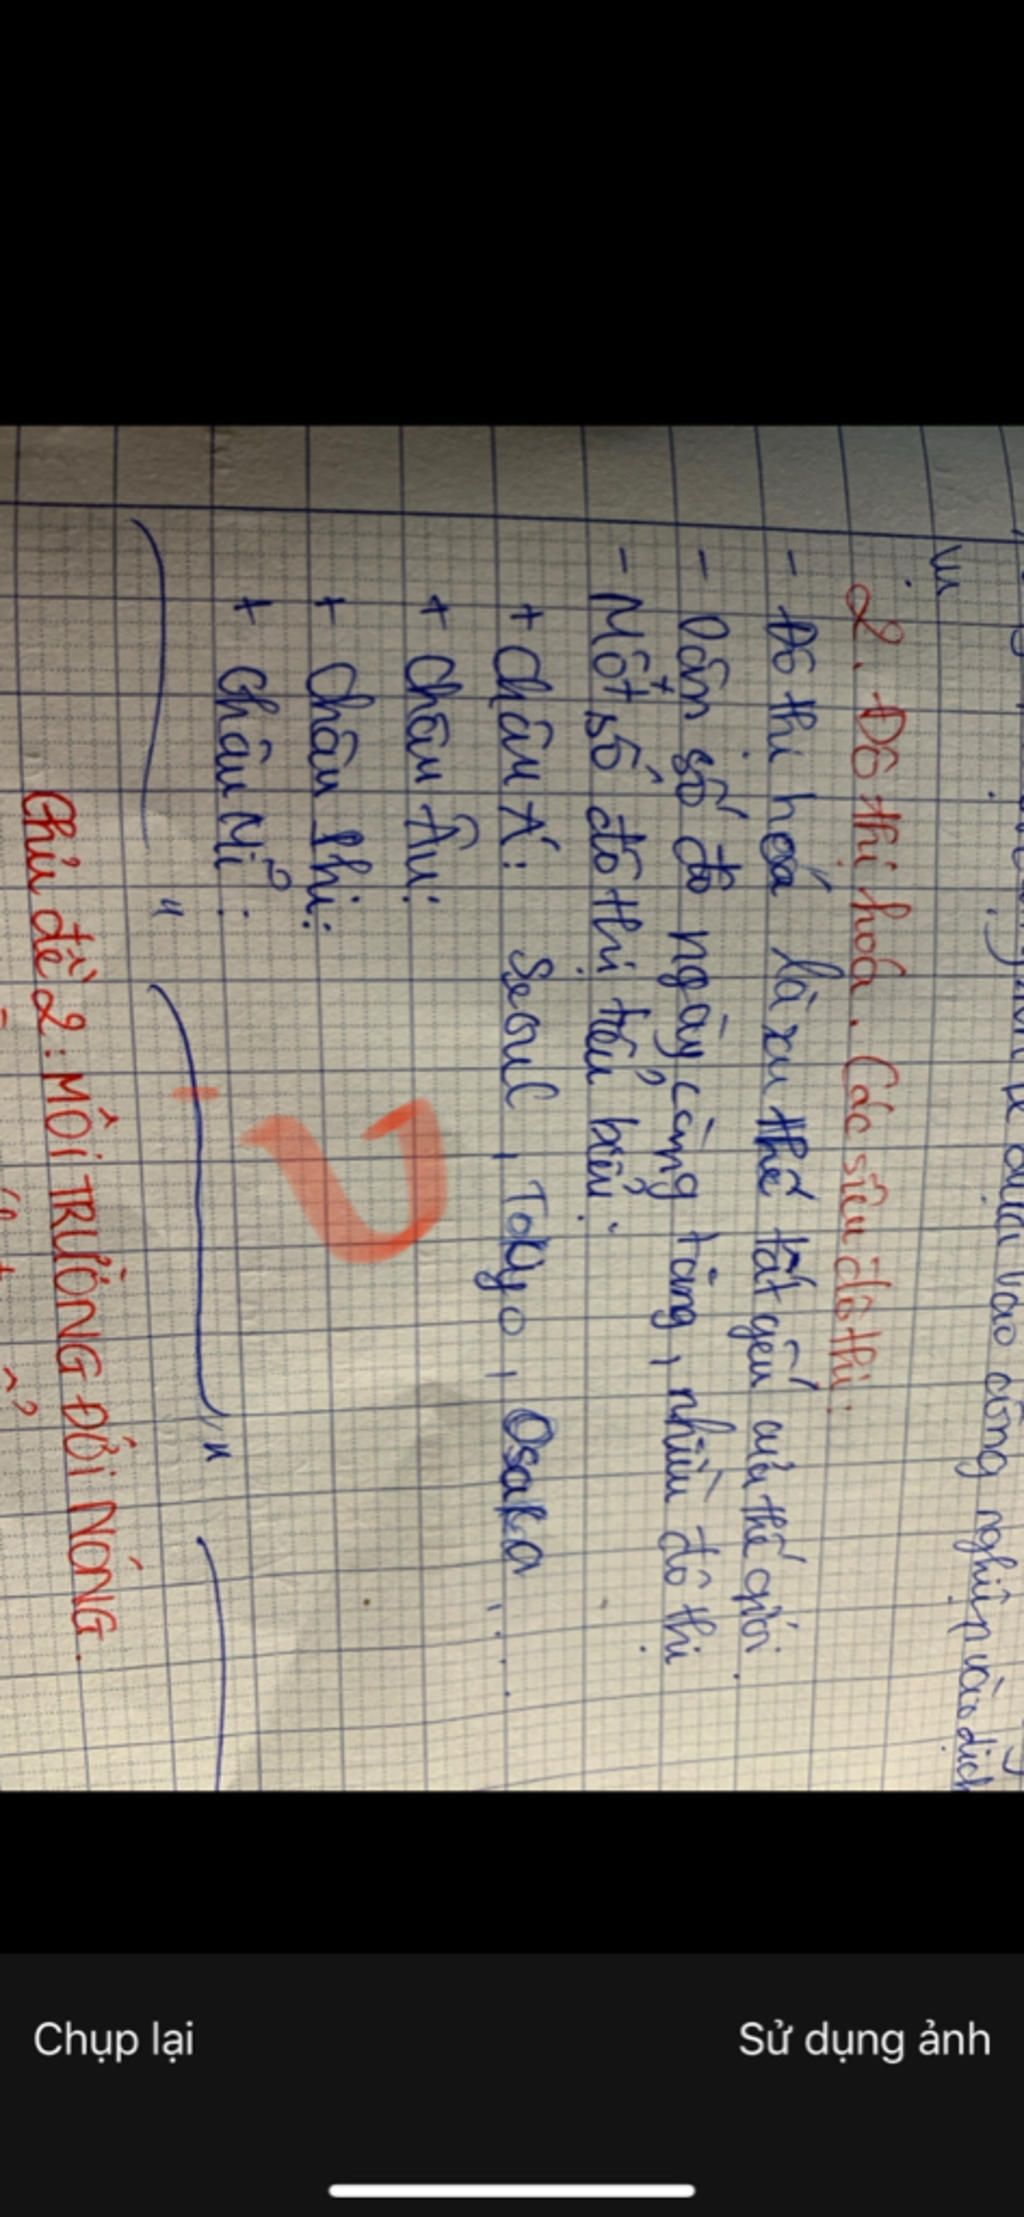 vụ
dựa vào công nghiệp và dịch
2. Đô thị hoá. Các siêu đô thị:
- Đô thị hoá là xu thế tất yếu của thế giới.
- Dân số đô ngày càng tăng, nhiều đô thị
- Một số đô thị tiêu biểu:
+ Châu Á: Seoul, Tokyo, Osaka, ...
+ Châu Âu:
+ Châu Phi:
+ Châu Mĩ:
Chủ đề 2: MÔI TRƯỜNG ĐỚI NÓNG.
Chụp lại
Sử dụng ảnh